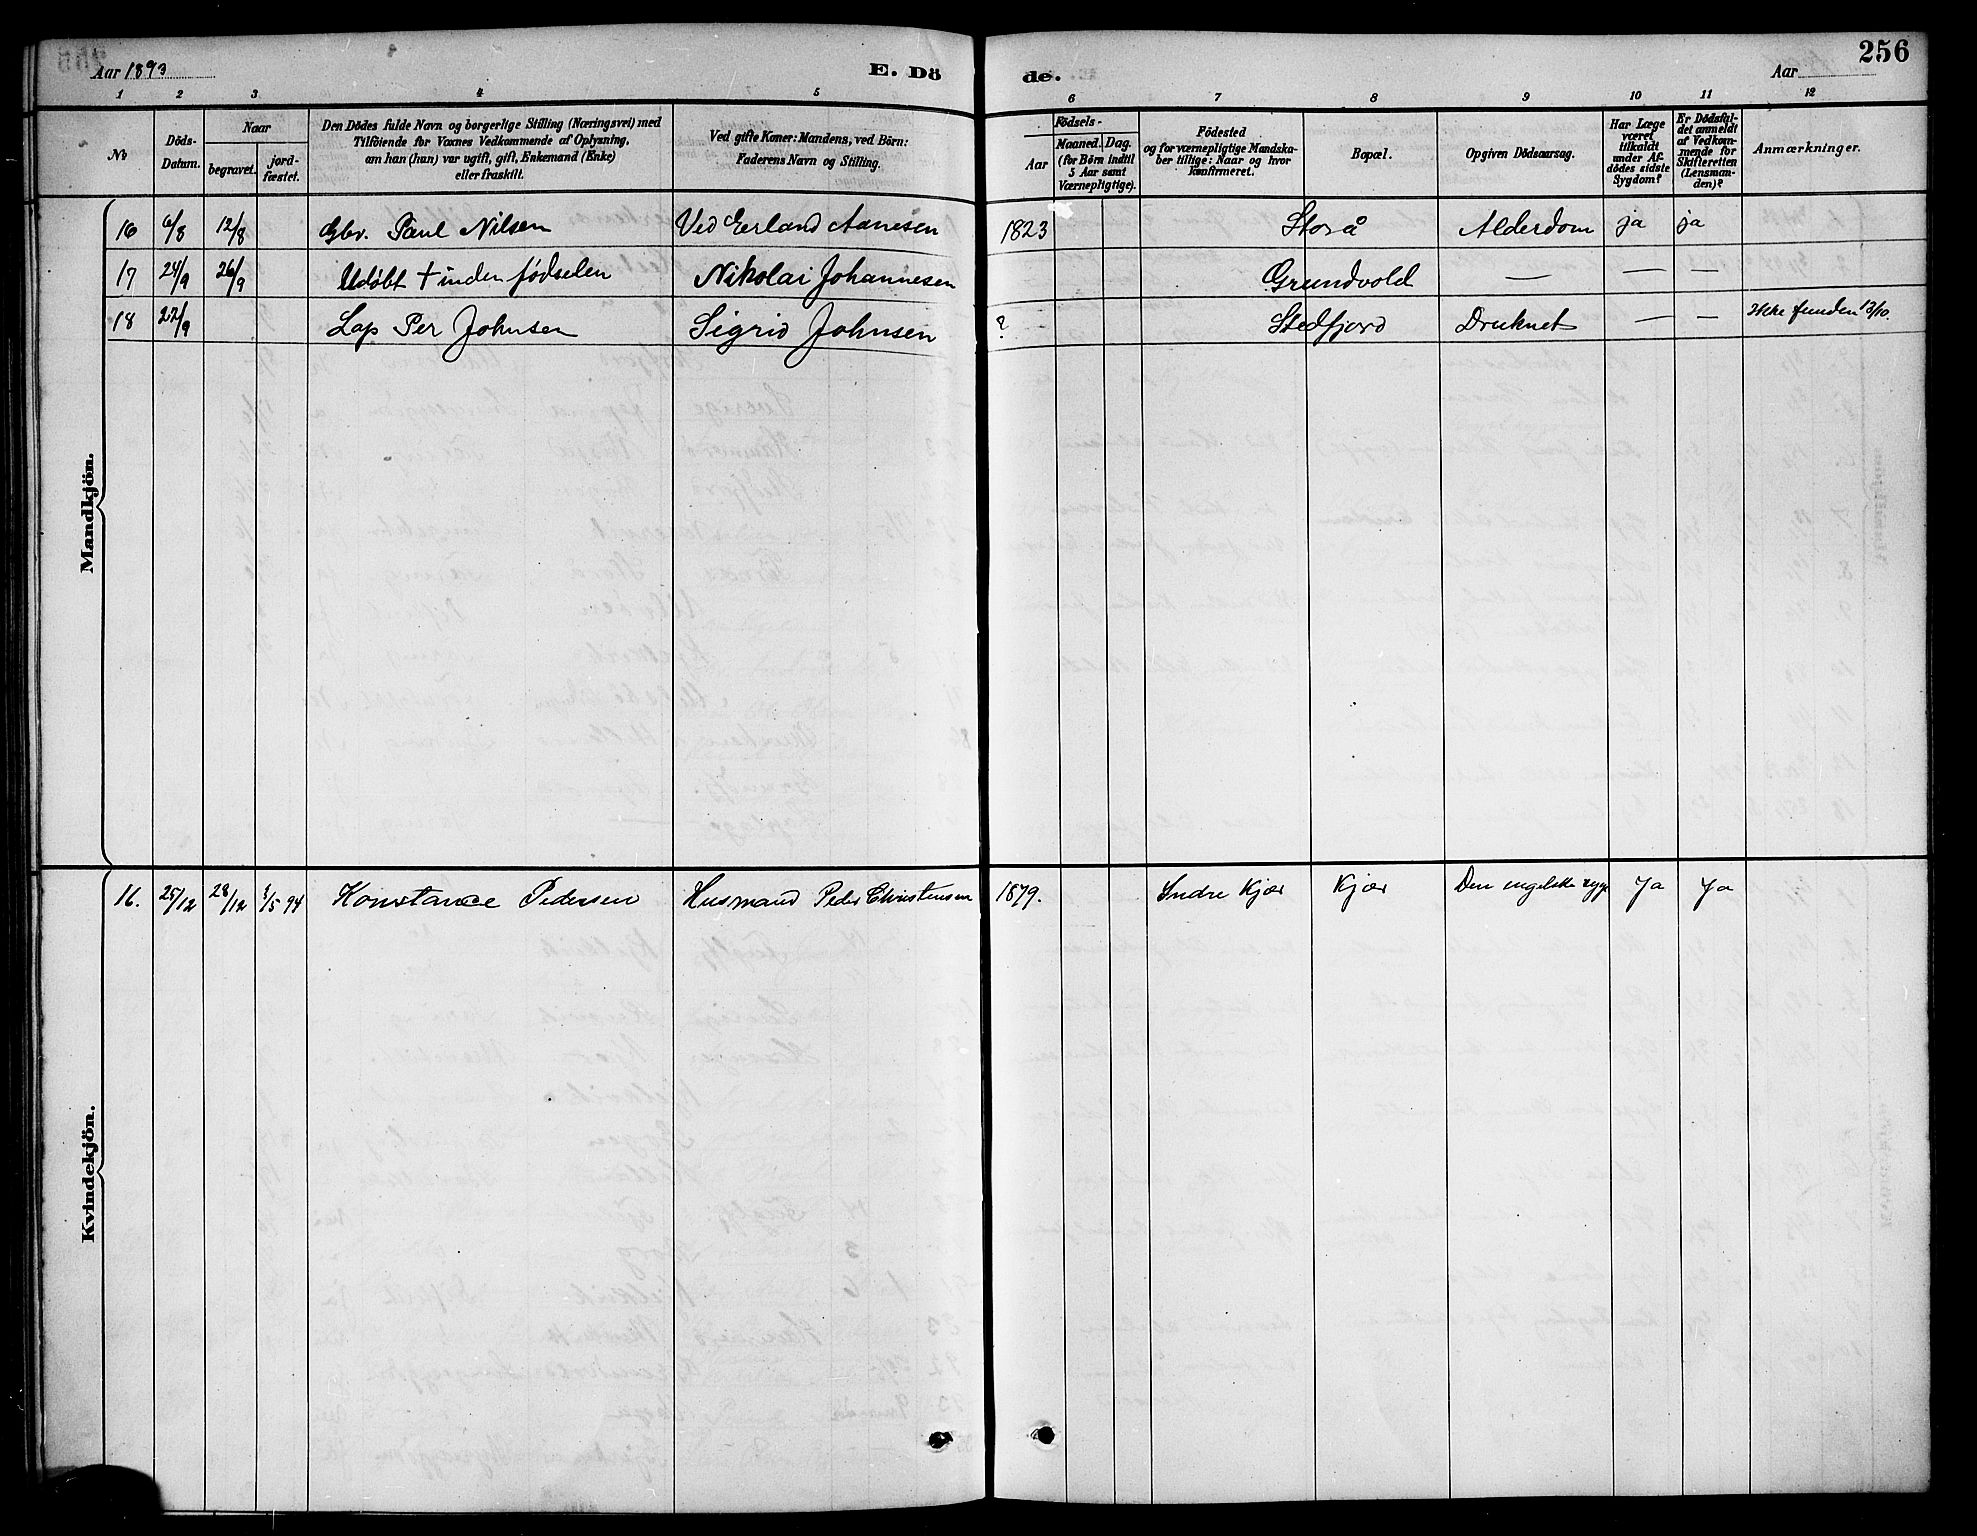 256
Aar 1893
E. Dö
de.
Aar
1 2 3 4 5 6 7 8 9 10 11 12
No
Döds-
Datum.
Naar
begravet.
jord-
fæstet.
Den Dödes fulde Navn og borgerlige Stilling (Næringsvei) med
Tilföiende for Voxnes Vedkommende af Oplysning,
om han (hun) var ugift, gift, Enkemand (Enke)
eller fraskilt.
Ved gifte Koner: Mandens, ved Börn:
Faderens Navn og Stilling.
Födsels-
Aar
Maaned. Dag.
(for Börn indtil
5 Aar samt
Værnepligtige).
Födested
og for værnepligtige Mandska-
ber tillige: Naar og hvor
konfirmeret.
Bopæl.
Opgiven Dödsaarsag.
Har Læge
været
tilkaldt
under Af-
dödes sidste
Sygdom?
Er Dödsfal-
det anmeldt
af Vedkom-
mende for
Skifteretten
(Lensman-
den)?
Anmærkninger.
Mandkjön.
16 6/8 12/8 Gbr. Paul Nilsen Ved Erland Aanesen 1823 Storå Alderdom ja ja
17 24/9 26/9 Udøbt + inden fødselen Nikolai Johannesen Grundvold — — —
18 22/9 Lap Per Johnsen Sigrid Johnsen ? Stedfjord Druknet — — Ikke funden 13/10.
Kvindekjön.
16. 25/12 28/12 1/5 94 Konstance Pedersen Husmand Peder Christensen 1879. Indre Kjær Kjær Den engelske syge Ja Ja